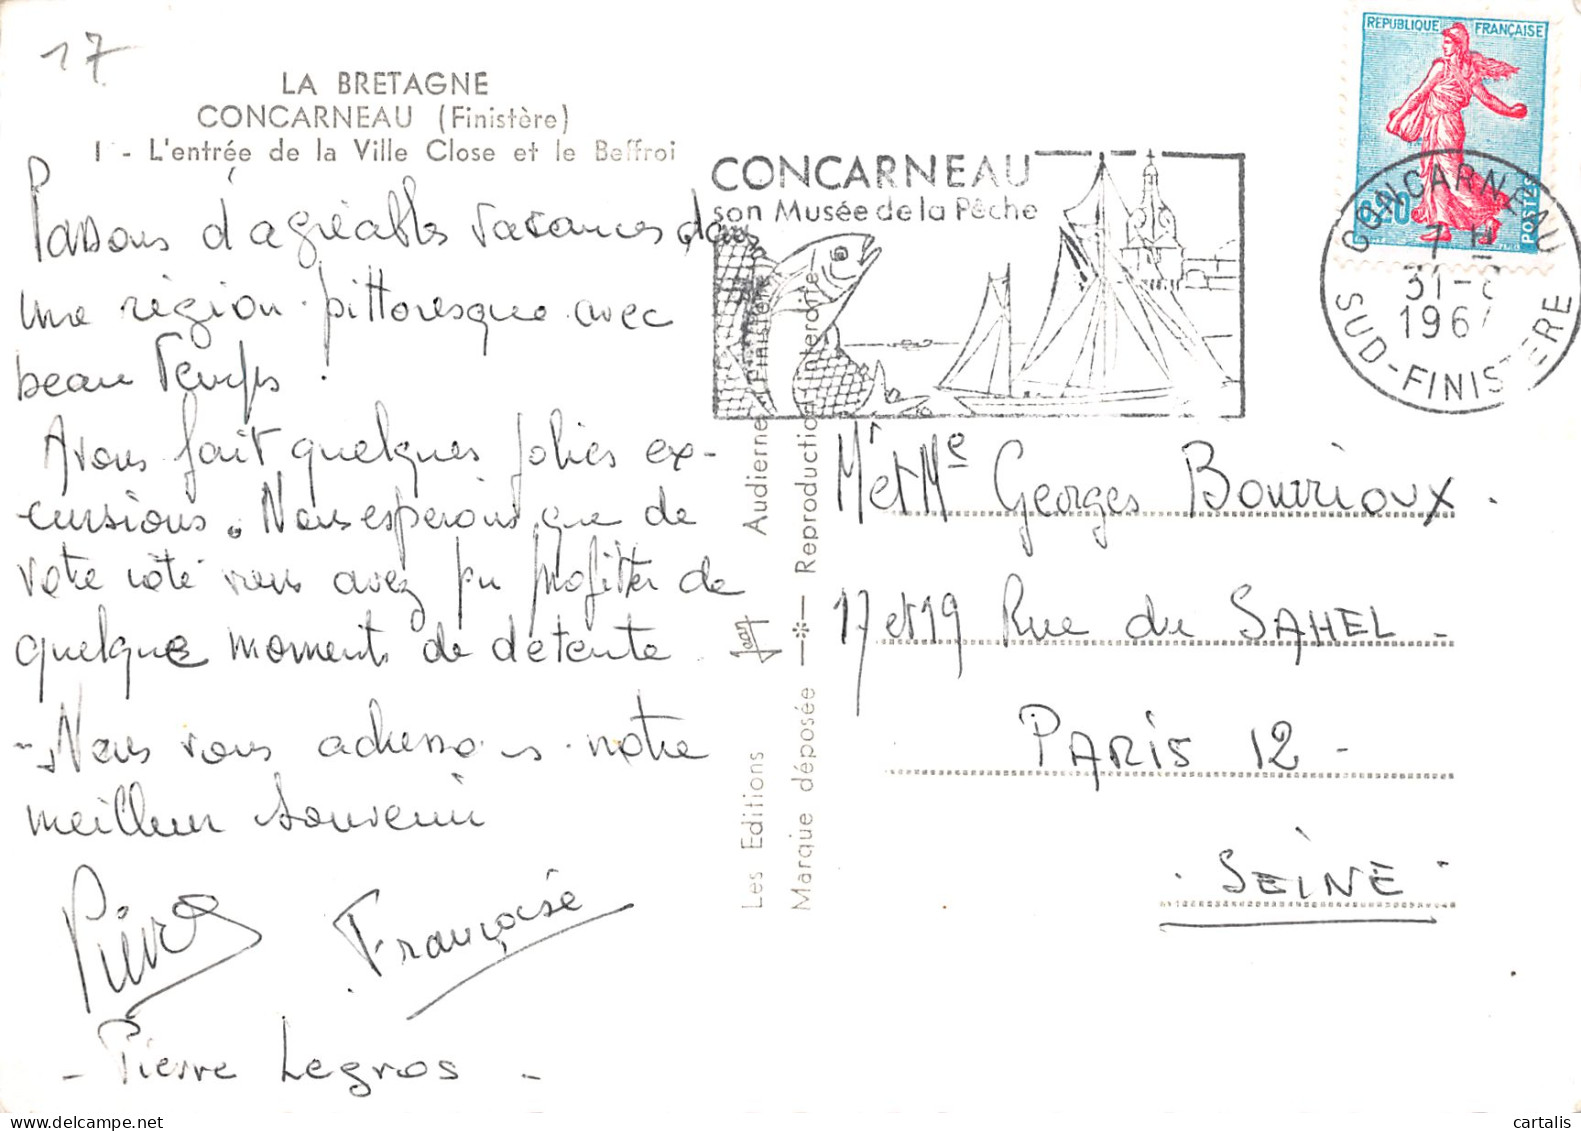 17
LA BRETAGNE
CONCARNEAU (Finistère)
1 - L'entrée de la Ville Close et le Beffroi
Passons d'agréables vacances dans
une région pittoresque avec
beau temps.
Avons fait quelques jolies ex-
cursions. Nous esperons que de
votre côté vous avez pu profiter de
quelques moments de détente
- Nous vous adressons notre
meilleur souvenir
Pierre
Françoise
- Pierre Legros -
Les Editions Jean Audierne (Finistère)
Marque déposée —*— Reproduction interdite
CONCARNEAU
son Musée de la Pêche
REPUBLIQUE FRANÇAISE
0,20
POSTES
CONCARNEAU
7 H
31-8
196
SUD-FINISTERE
Mr et Me Georges Bourrioux.
17 et 19 Rue du SAHEL -
PARIS 12 -
- SEINE -
cartalis